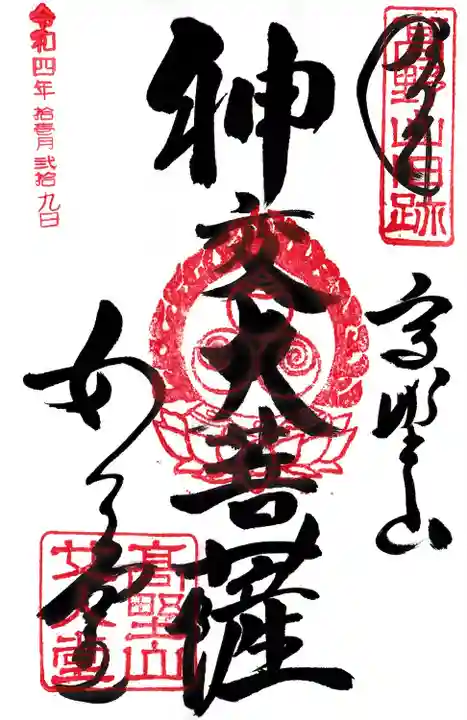 高野山旧跡
高野山
神変大菩薩
女人堂
高野山
女人堂
令和四年拾壹月弐拾九日